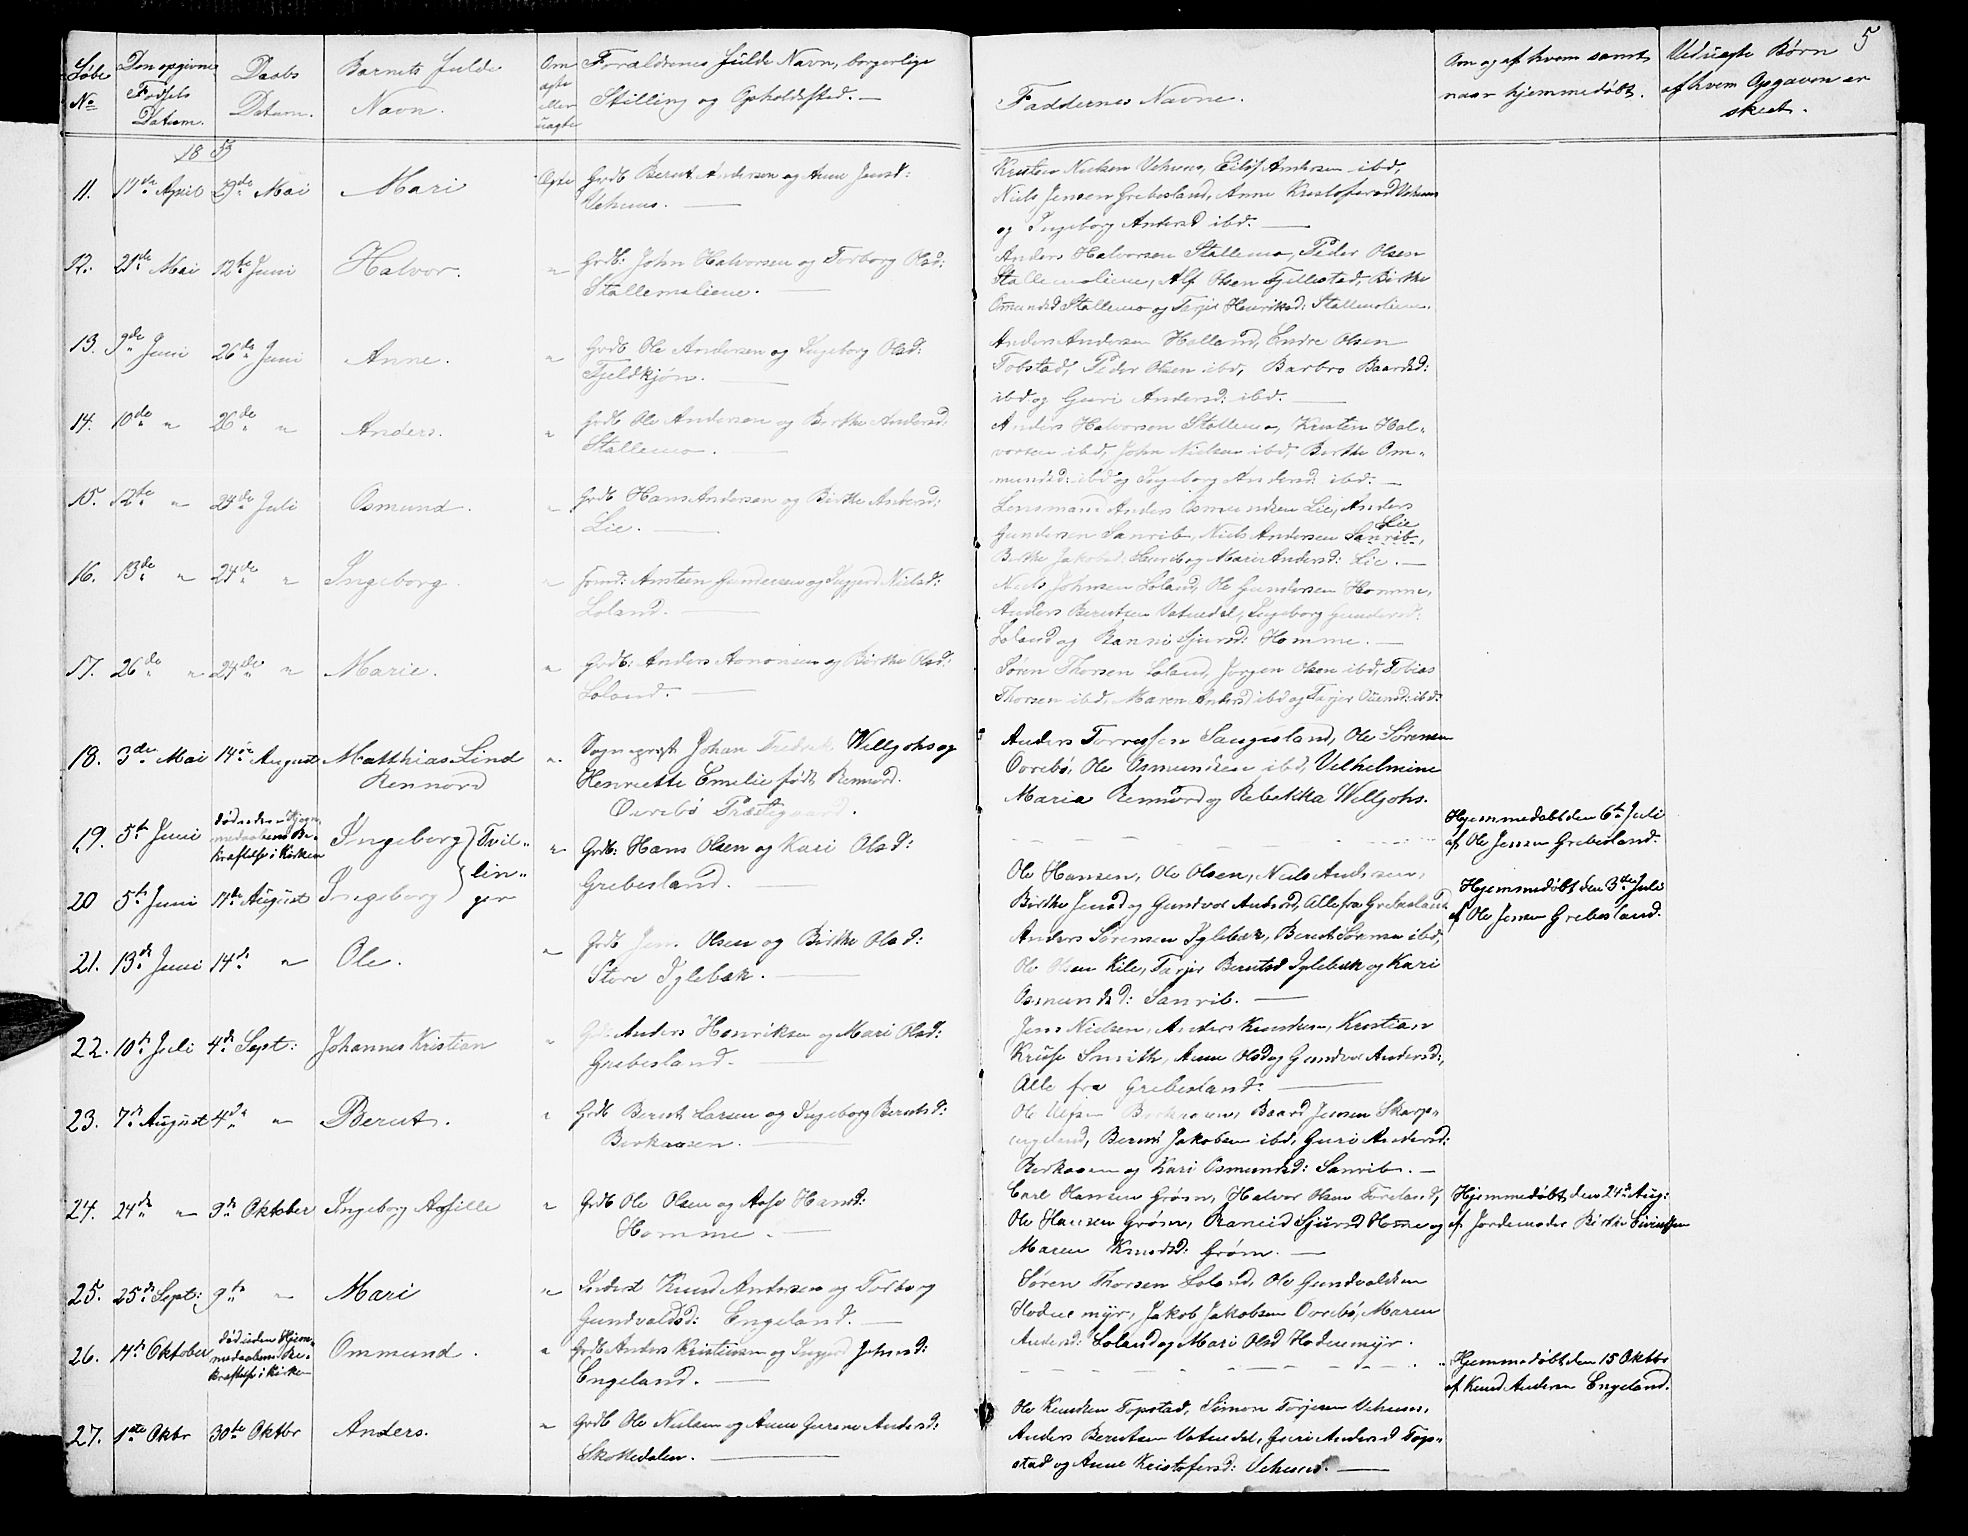 5
Løbe No
Den opgivne Fødsels Datum.
Daabs Datum.
Barnets fulde Navn.
Om ægte eller uægte
Forældrenes fulde Navn, borgerlige Stilling og Opholdssted.
Faddernes Navne.
Om og af hvem samt naar hjemmedøbt.
Uduægte Børn af hvem Opgaven er skeet.
1853
11. 17de April 5te Mai Mari Ægte Grdb. Berut Andersen og Anne Jensd:
Vehuus.
Kristen Nielsen Vehuus, Eilof Andersen ibd,
Niels Jensen Grebesland, Anne Kristofersd Vehuus
og Ingeborg Andersd ibd.
12. 21de Mai 12te Juni Halvor. " Grdb: John Halvorsen og Torborg Olsd:
Stallemoliene.
Anders Halvorsen Stallemo, Peder Olsen
Stallemoliene, Alf Olsen Fjellestad, Birthe
Omundsd Stallemo og Tarjer Henriksd: Stallemoliene.
13. 9de Juni 26de Juni Anne. " Grdb Ole Andersen og Ingeborg Olsd:
Fjeldkjøn.
Anders Andersen Holland, Endre Olsen
Tobstad, Peder Olsen ibd, Barbro Baardsd:
ibd og Guri Andersd: ibd.
14. 10de " 26de " Anders. " Grdb Ole Andersen og Birthe Andersd:
Stallemo.
Anders Halvorsen Stallemo, Kristen Hal-
vorsen ibd, John Nielsen ibd, Birthe Om-
mundsd: ibd og Ingeborg Andersd ibd.
15. 12te " 24de Juli Osmund. " Grdb Hans Andersen og Birthe Andersd:
Lie.
Lensmand Anders Osmundsen Lie, Anders
Gundersen Sanrib, Niels Andersen Sanrib, Lie
Birthe Jakobsd: Sanrib og Marie Andersd: Lie.
16. 13de " 24de " Ingeborg. " Grmd: Arntsen Gundersen og Ingjerd Nielsd:
Loland.
Niels Johnsen Loland, Ole Gundersen Homme,
Anders Berutsen Vatnedal, Ingeborg Gundersd:
Loland og Ranni Sjursd: Homme.
17. 26de " 24de " Marie. " Grdb: Anders Aanonsen og Birthe Olsd:
Loland.
Søren Thorsen Loland, Jørgen Olsen ibd, Tobias
Thorsen ibd, Maren Andersd ibd og Tarjer ibd:
18. 3de Mai 14de August Matthias Lind
Rennord " Sognepræst Johan Fredrik Wellgohs og
Henriette Emelie født Rennord.
Øvrebø Præstegaard.
Anders Torressen Saugesland, Ole Sørensen
Øvrebø, Ole Osmundsen ibd, Vilhelmine
Maria Rennord og Rebekka Wellgohs.
19. 5te Juni død uden Hjem-
medaabens Be-
kræftelse i Kirken Ingeborg } Tvil-
" Grdb: Hans Olsen og Kari Olsd:
Grebesland.
Hjemmedøbt den 6te Juli
af Ole Jensen Grebesland.
20 5te Juni 14de August Ingeborg } lin-
ger
Ole Hansen, Ole Olsen, Niels Andersen,
Birthe Jensd og Gundvor Andersd, Alle fra Grebesland
Hjemmedøbt den 3de Juli
af Ole Jensen Grebesland.
21. 13de Juni 14de " Ole. " Grdb Jens Olsen og Birthe Olsd:
Store Iglebæk.
Anders Sørensen Iglebæk, Berut Sørensen ibd,
Ole Olsen Kile, Tarjer Berutsd Iglebæk og Kari
Osmundsd: Sanrib.
22. 10de Juli 4de Sept: Johannes Kristian " Grdb Anders Henriksen og Mari Olsd:
Grebesland.
Jens Nielsen, Anders Knudsen, Kristian
Kruse Smith, Anne Olsd og Gundvor Andersd:,
Alle fra Grebesland.
23. 7de August 4de " Berut. " Grdb Berut Larsen og Ingeborg Berutsd:
Berkaasen.
Ole Berkaasen, Baard Jensen Skarp-
engeland, Berut Jakobsen ibd, Guri Andersd:
Berkaasen og Kari Osmundsd: Sanrib.
24. 24de " 9de Oktober Ingeborg Aasille " Grdb Ole Olsen og Aase Hansd:
Homme.
Carl Hansen Grøsn, Halvor OlsenFøreland,
Ole Hansen Grøsn, Ranveid Sjursd Homme og
Maren Knudsd: Grøsn.
Hjemmedøbt den 24de Aug:
af Jordemoder Birthe Sivertsen
25. 25de Sept: 9de " Mari " Inderst Knud Andersen og Torborg
Gundvaldsd: Engeland.
Søren Thorsen Loland, Ole Gundvaldsen
Hodnemyr, Jakob Jakobsen Øvrebø, Maren
Andersd: Loland og Mari Olsd Hodnemyr.
26. 14de Oktober død uden Hjem-
medaabens Be-
kræftelse i Kirken Ommund. " Grdb Anders Kristiansen og Ingjerd Johnsd:
Engeland.
Hjemmedøbt den 15 Oktbr
af Knud Andersen Engeland.
27. 1ste Oktbr 30te Oktbr Anders. " Grdb Ole Nielsen og Anne Gurine Andersd:
Skokedalen.
Ole Knudsen Topstad, Simon Torjesen Vehuus,
Anders Berutsen Vatnedal, Guri Andersd Top-
stad og Anne Kristofersd: Vehuus.